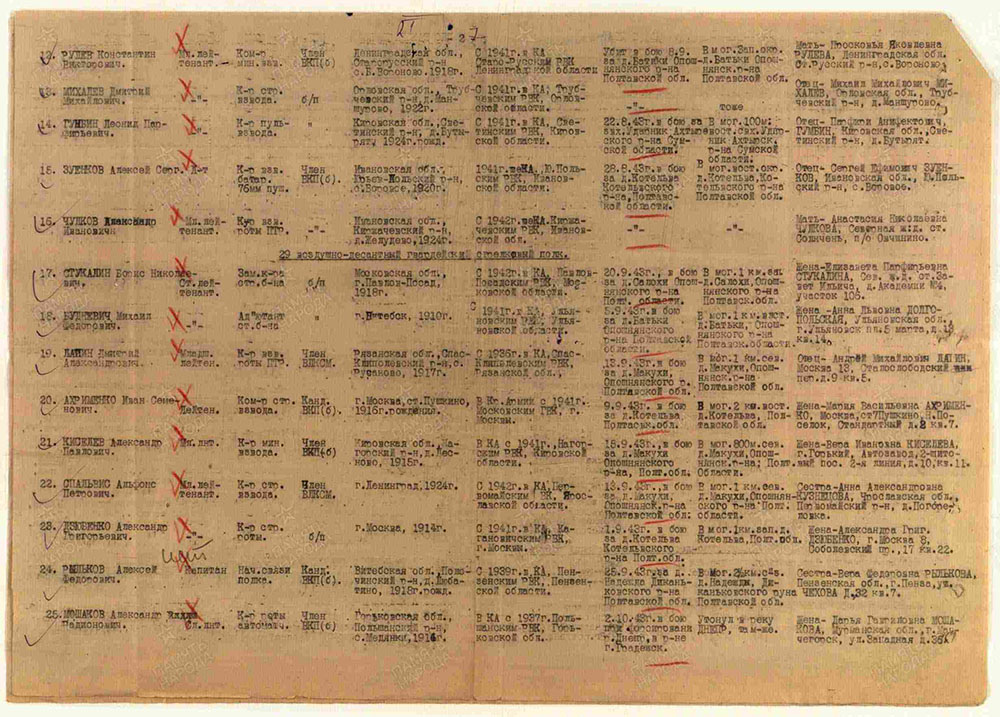 27
12. РУЛЕВ Константин Викторович. Мл.лейтенант. Ком-р мин.взв. Член ВКП(б). Ленинградская обл., Старорусский р-н с.В.Вороново.1918г. С 1941г.в КА Старо-Русским РВК Ленинградской области Убит в бою 8.9. за д.Батьки Опош-нянского р-на Полтавской обл. В мог.Зап.окр. д.Батьки Опош-нянск.р-на Полтавской обл. Мать- Просковья Яковлевна РУЛЕВА, Ленинградской обл. Ст.Русский р-н,с.Вороново.
13. МИХАЛЕВ Дмитрий Михайлович. -"- К-р стр. взвода. б/п Орловская обл., Труб-чевский р-н,д.Ман-шурово, 1922г. С 1941г.в КА, Труб-чевским РВК, Орлов-ской области. -"- тоже Отец- Михаил Михайлович МИ-ХАЛЕВ, Орловская обл., Труб-чевский р-н, д.Маншурово.
14. ГУМБИН Леонид Пар-фирьевич. -"- К-р пуль-взвода. " Кировская обл., Све-тинский р-н, д.Буты-рят, 1924г.рожд. С 1941г.в КА, Све-тинским РВК, Киров-ской области. 22.8.43г.в бою за свх.Ударник Ахтыр-ского р-на Сум-ской области. В мог.100м. вост.свх.Удар-ник Ахтырск. р-на Сумской области. Отец- Парфион Анифектович ГУМБИН, Кировская обл.,Све-тинский р-н, д.Бутырят.
15. ЗУЕНКОВ Алексей Серг. Л-т К-р взв. батар. 76мм пуш. Член ВКП(б). Ивановская обл., Юрьев-Польский р-н, с.Воровое, 1920г. 1941г.в КА, Ю.Поль-ским РВК, Иванов-ской области. 28.8.43г.в бою за д.Котельва Котельвского р-на,Полтавс-кой области. В мог.вост.ок. д.Котельва,Ко-тельвского р-на Полтавской обл. Отец- Сергей Ефимович ЗУЕН-КОВ, Ивановская обл.,Ю.Поль-ский р-н, с.Воровое.
16. ЧУЛКОВ Александр Иванович Мл.лей-тенант. К-р взв. роты ПТР. -"- Ивановская обл., Киржачевский р-н, д.Желудево,1924г. С 1942г.в КА Киржа-чевским РВК, Иванов-ской обл. -"- -"- Мать- Анастасия Николаевна ЧУЛКОВА, Северная ж.д. ст. п/о Овчинино.
29 воздушно-десантный гвардейский стрелковый полк.
17. СТУКАЛИН Борис Николае-вич. Ст.лей-тенант. Зам.к-ра отб.б-на б/п Московская обл., г.Павлов-Посад, 1918г. С 1942г.в КА, Павлов-Посадским РВК, Мос-ковской области. 20.9.43г., в бою за д.Салохи, Опош-нянского р-на Полт. области. В мог.1 км.зап. д.Салохи,Опош-нянского р-на Полтавск.обл. Жена-Елизавета Парфирьевна СТУКАЛИНА, Сев. ж.д. ст.За-вет Ильича, д.Академии №4, участок 106.
18. БУДКЕВИЧ Михаил Федорович. -"- Ад"ютант ст.б-на " г.Витебск, 1910г. С 1941г.в КА, Улья-новским РВК, Улья-новской области. 5.9.43г.в бою за д.Батьки Опошнянского р-на Полтавской области. В мог.1 км.вост. д.Батьки, Опош-нянского р-на Полтавск.области. Жена -Анна Львовна ДОЛГО-ПОЛЬСКАЯ, Ульяновская обл. г.Ульяновск пл.5 марта д.13 кв.14.
19. ЛАПИН Дмитрий Александрович. Младш. лейтен. К-р взв. роты ПТР. Член ВЛКСМ. Рязанская обл.,Спас-Клепиловский р-н,с. Русаново, 1917г. С 1936г.в КА,Спас-Клепиловским РВК, Рязанской обл., 13.9.43г.в бою за д.Макухи, Опошнянского р. Полтавской обл. В мог.1 км.сев. д.Макухи,Опош-нянск.р-на Полтавской обл. Отец- Андрей Михайлович ЛАПИН, Москва 13, Сталослободский пер.д.9 кв.5.
20. АХРИМЕНКО Иван Семе-нович. Лейтен. Ком-р стр. взвода. Канд. ВКП(б). г.Москва,ст.Пушкино, 1916г.рождения. В Кр.Армии с 1941г. Московским РВК, г. Москвы. 9.9.43г.в бою за д.Котельва Полтавск.обл. В мог.2 км.вост. д.Котельва, Пол-тавской обл. Жена-Мария Васильевна АХРИМЕН-КО, Москва, ст.Пушкино, Н.По-селок, Стандартный д.2 кв.7.
21. КИСЕЛЕВ Александр Павлович. Мл.лнт. К-р мин. взвода. Член ВКП(б) Кировская обл., На-горский р-н,д.Лес-ново, 1915г. В КА с 1941г.,Нагор-ским РВК, Кировской области. 18.9.43г.в бою за д.Макухи Опошнянского р-на, Полт.обл. В мог.800м.сев. д.Макухи, Опош-нянск.р-на; Полт.области Жена-Вера Ивановна КИСЕЛЕВА, г.Горький, Автозавод,2-щито-вый пос. 2-я линия,д.10,кв.11.
22. СПАЛЬВИС Альфонс Петрович. Мл.лей-тенант. К-р стр. взвода. Член ВЛКСМ. г.Ленинград,1924г. С 1942г.в КА,Пер-вомайским РВК, Ярос-лавской области. 13.9.43г.в бою за д.Макухи, Опошнянск.р-на Полтавской обл. В мог.1 км.сев. д.Макухи,Опошнян-ск.р-на Полтавской области. Сестра-Анна Александровна КУЗНЕЦОВА, Ярославская обл. Первомайский р-н, д.Погоре-ловка.
23. ДЗЮБЕНКО Александр Григорьевич. -"- К-р стр. роты. б/п г.Москва, 1914г. С 1941г.в КА, Ка-гановичским РВК, г.Москвы. 1.9.43г.в бою за д.Котельва Котельвского р-на Полт.обл. В мог.1км.зап.д. Котельва,Полт.обл. Жена-Александра Григ. ДЗЮБЕНКО, г.Москва 8, Соболевский пр.,17 кв.22.
24. РЫЛЬКОВ Алексей Федорович. Капитан Нач.связи полка. Канд. ВКП(б). Витебская обл., Поло-чинский р-н, д.Люба-тино, 1918г.рожд. С 1939г.в КА, Пен-зенским РВК, Пензен-ской области. 25.9.43г.за д. Надежда Дикань-ковского р-на Полтавской обл. В мог.2км.сев. д.Надежды, Ди-каньковского р-на Полтавской обл. Сестра-Вера Федоровна РЫЛЬКОВА, Пензенская обл., г.Пенза,ул. ЧЕХОВА д.32 кв.7.
25. МОШАКОВ Александр Радионович. Мл.лнт. К-р роты автомат. Член ВКП(б) Горьковская обл., Польманский р-н, с.Медянки,1914г. В КА с 1937г.Поль-манским РВК, Горь-ковской обл. 2.10.43г.в бою при форсировании р.Днепр,в р-не г.Градежск. Утонул в реку ДНЕПР, там-же. Жена- Дарья Гавриловна МОША-КОВА, Мурманская обл.,г.Мон-чегорск, ул.Западная д.36